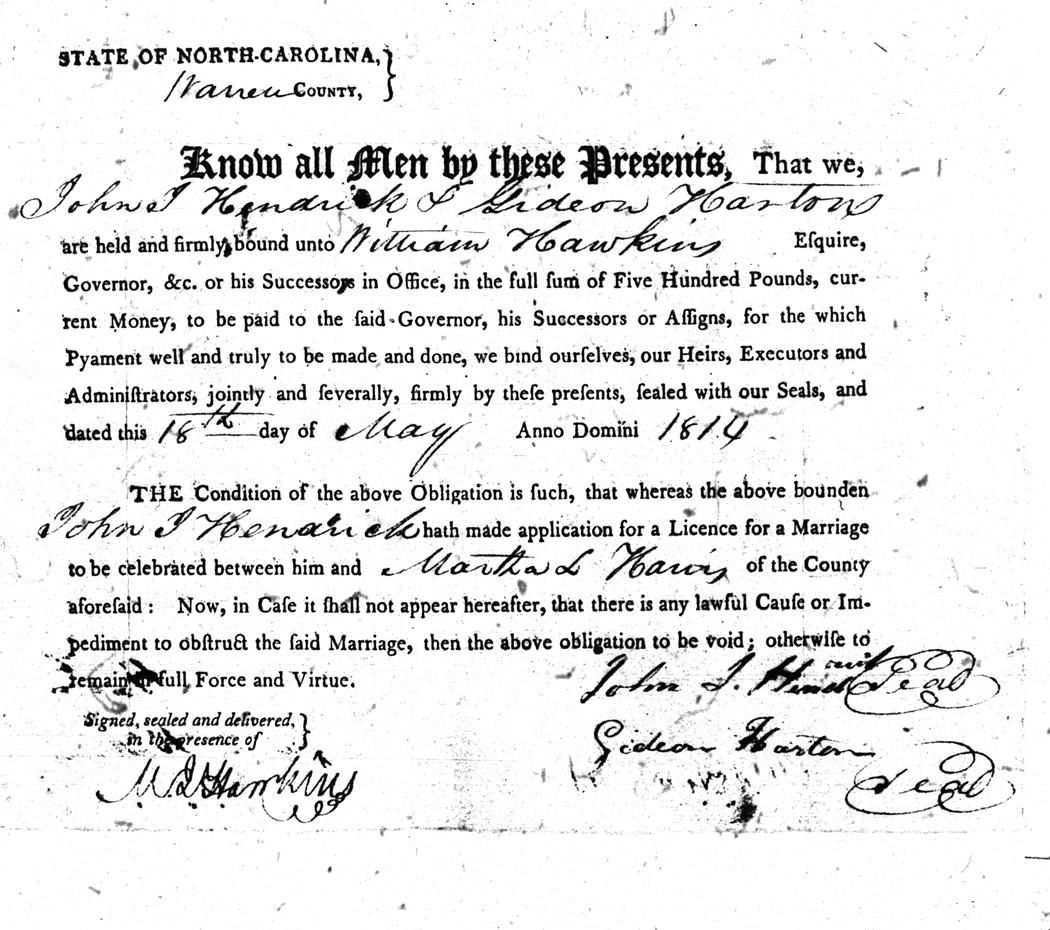 STATE OF NORTH-CAROLINA,
Warren COUNTY,
Know all Men by these Presents, That we,
John J Hendrick & Gideon Harton
are held and firmly bound unto William Hawkins Eſquire,
Governor, &c. or his Successors in Office, in the full ſum of Five Hundred Pounds, cur-
rent Money, to be paid to the ſaid Governor, his Successors or Aſſigns, for the which
Pyament well and truly to be made and done, we bind ourſelves, our Heirs, Executors and
Adminiſtrators, jointly and ſeverally, firmly by theſe preſents, ſealed with our Seals, and
dated this 18th day of May Anno Domini 1814
THE Condition of the above Obligation is ſuch, that whereas the above bounden
John J Hendrick hath made application for a Licence for a Marriage
to be celebrated between him and Martha L Harris of the County
aforeſaid: Now, in Caſe it ſhall not appear hereafter, that there is any lawful Cauſe or Im-
pediment to obſtruct the ſaid Marriage, then the above obligation to be void; otherwiſe to
remain in full Force and Virtue.
John J. Hendrick Seal
Signed, sealed and delivered,
in the presence of
Gideon Harton
Seal
Hawkins